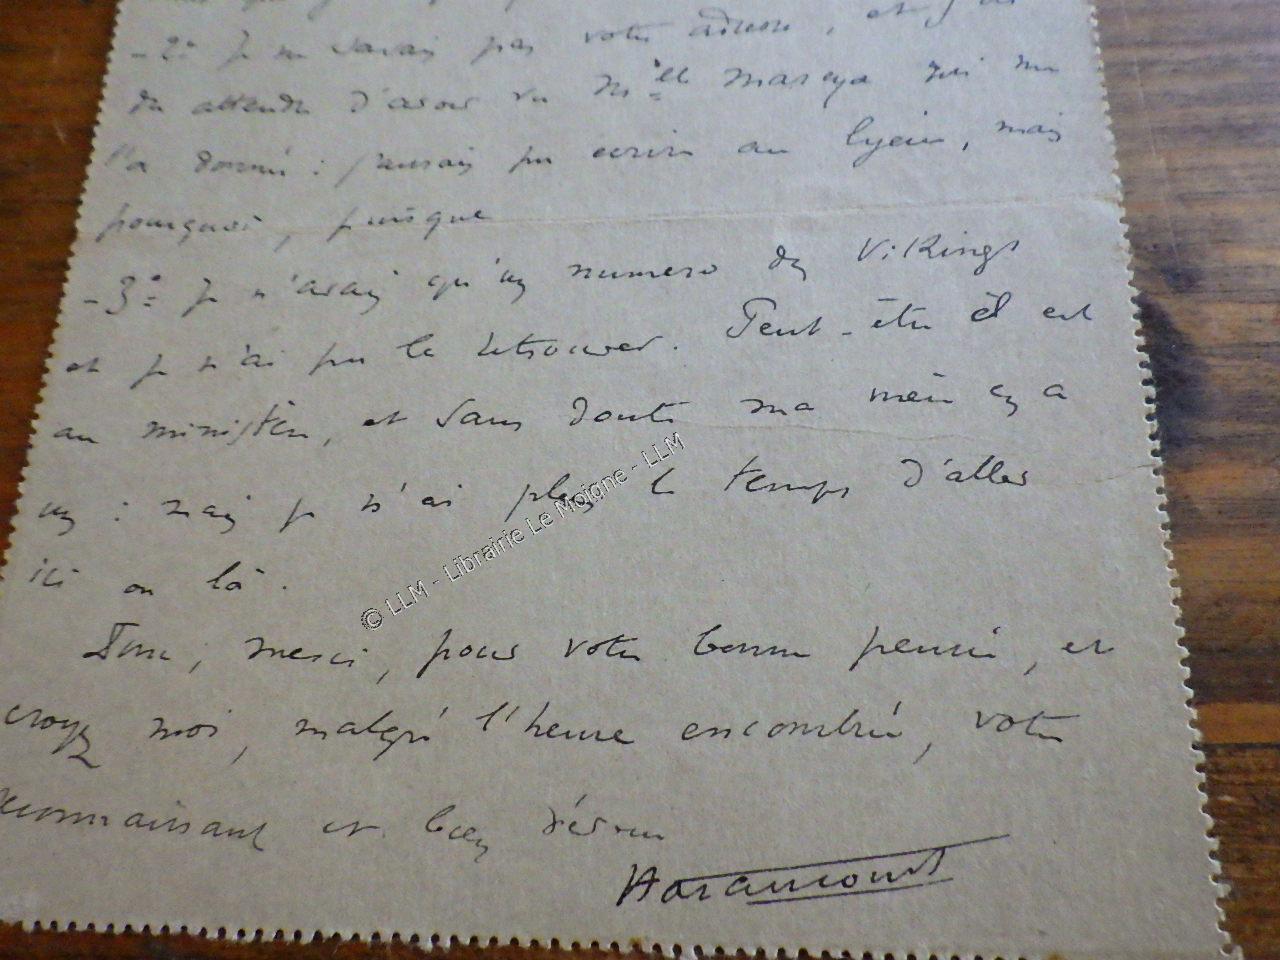 -2° Je ne savais pas votre adresse, et j'ai
dû attendre d'avoir vu Mlle
l'a donné : j'aurais pu écrire au lycée, mais
pourquoi, puisque
-3° Je n'avais qu'un numéro des Vikings
et je n'ai pu le retrouver. Peut-être il est
au ministère, et sans doute ma mère en a
un : mais je n'ai plus le temps d'aller
ici ou là.
Donc, merci, pour votre bonne pensée, et
croyez moi, malgré l'heure encombrée, votre
reconnaissant et bien dévoué
Haraucourt
© LLM - Librairie Le Moigne - LLM